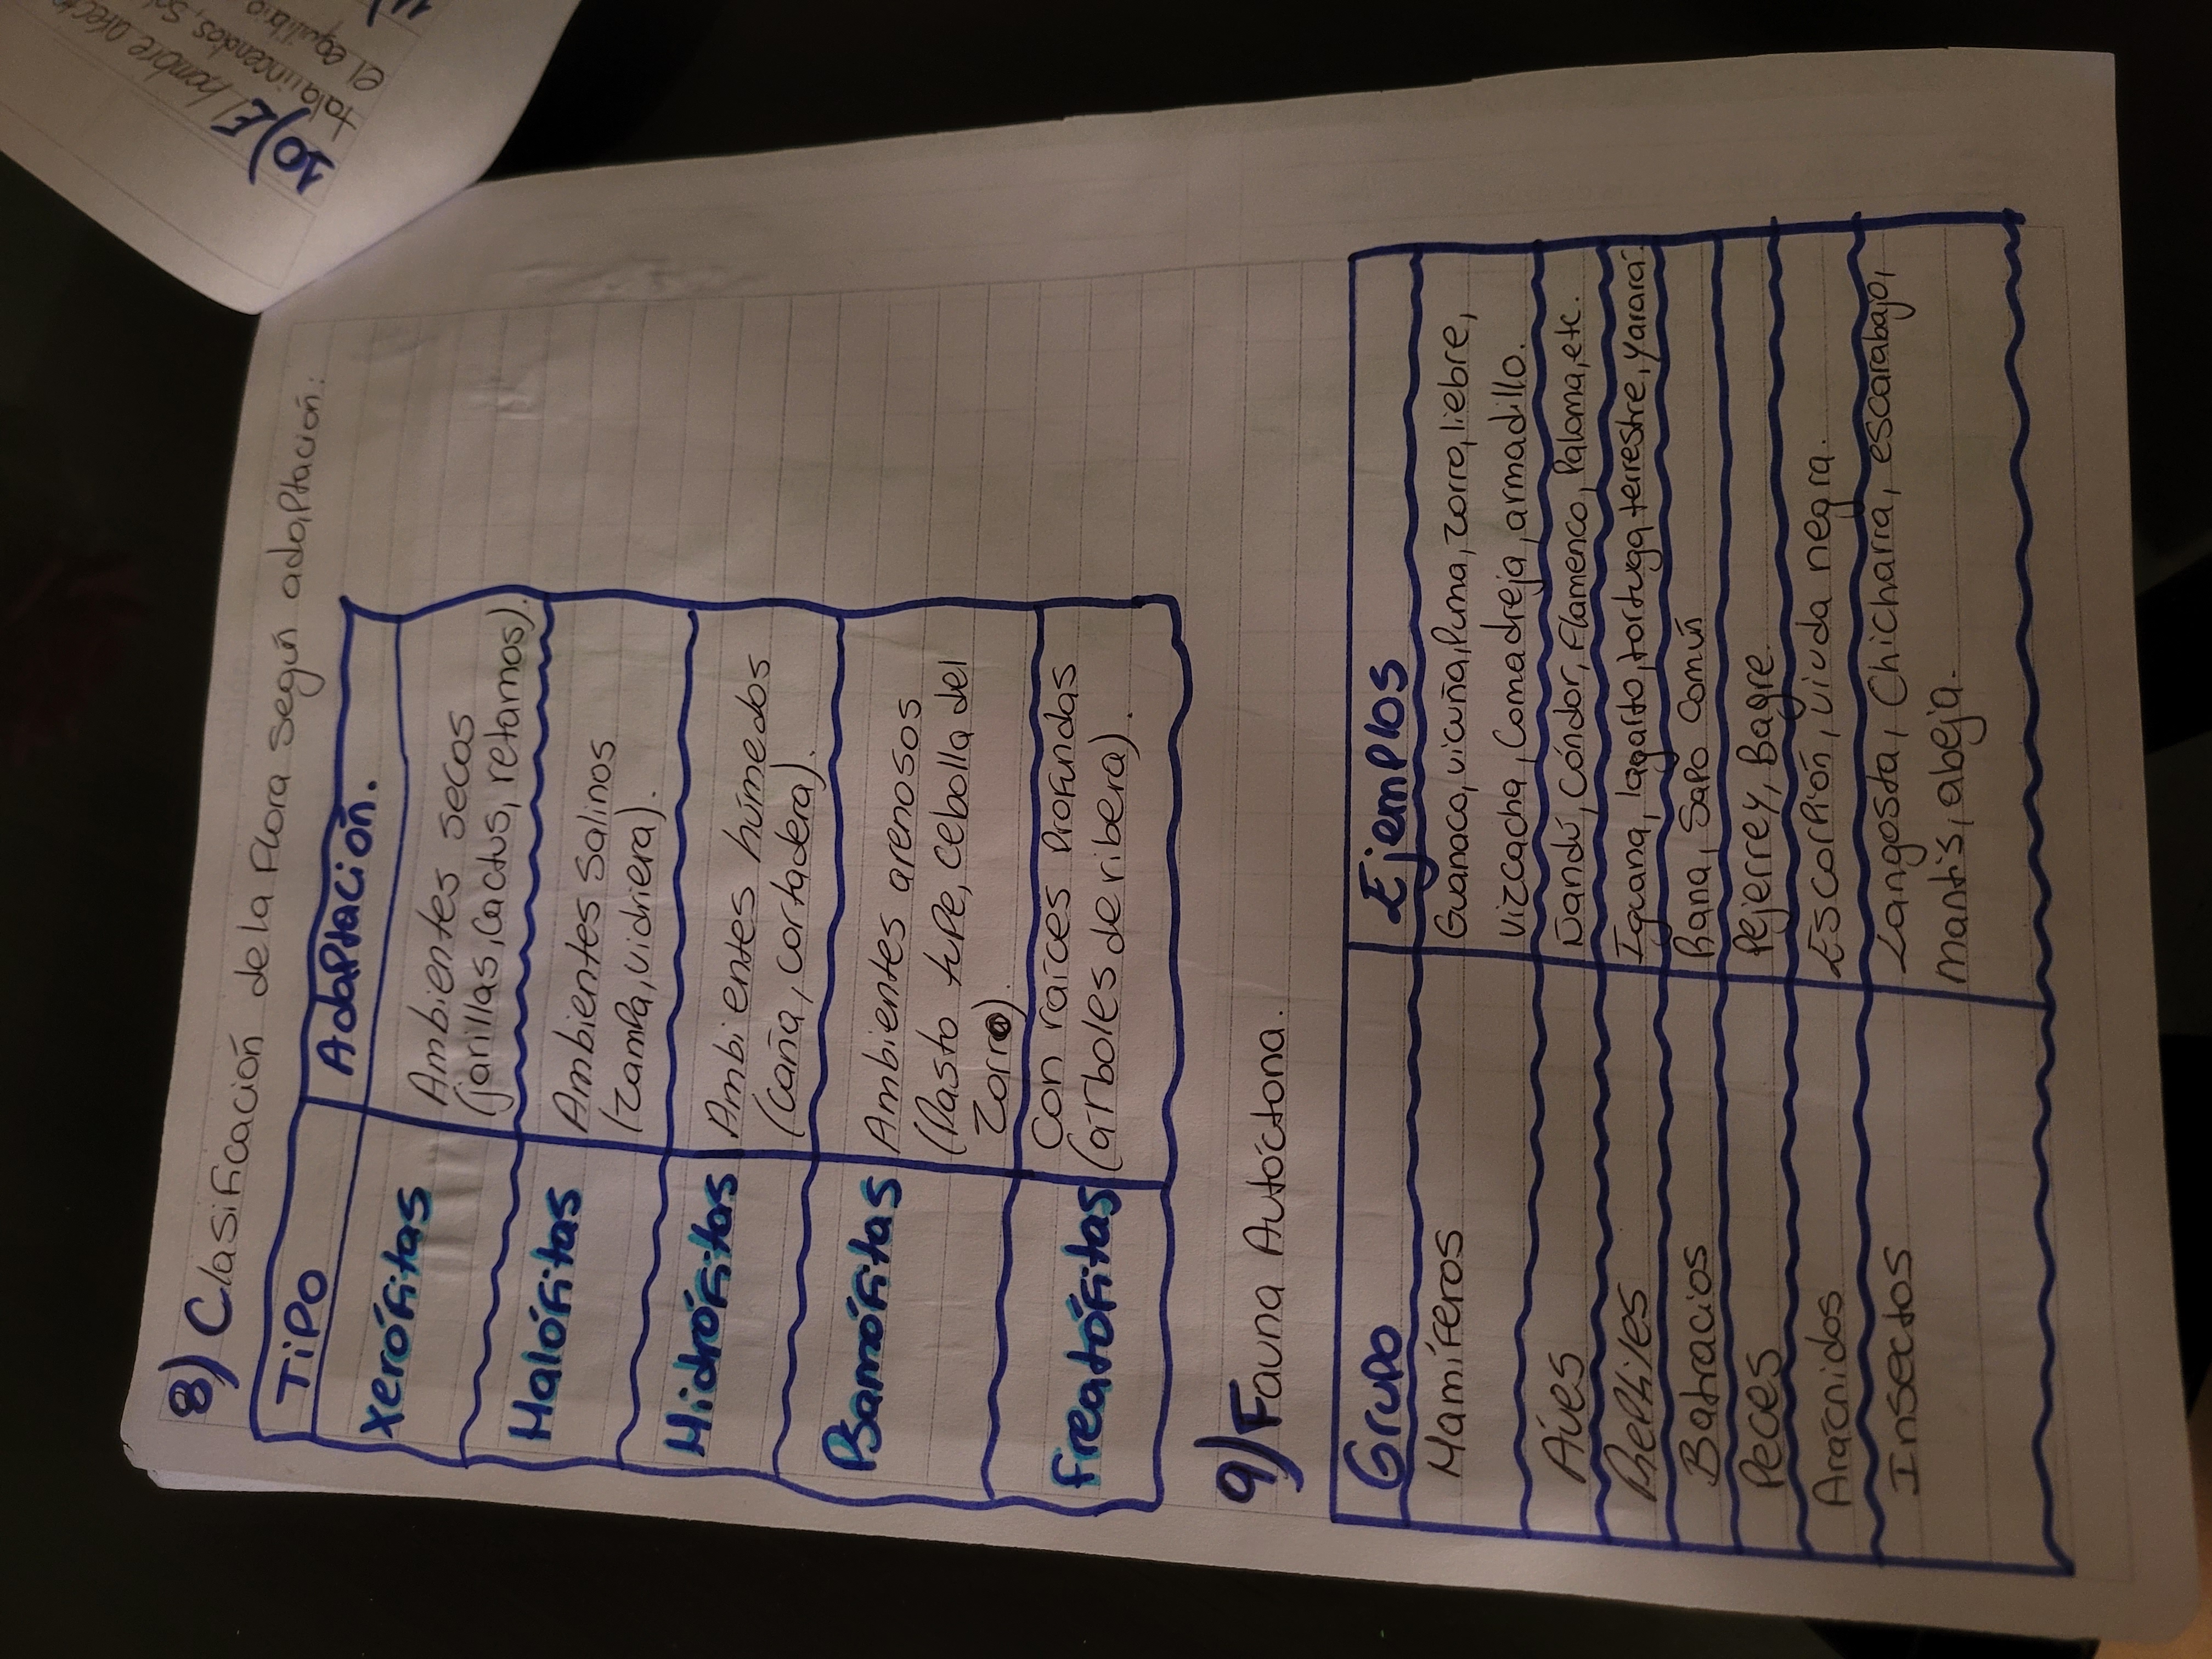 8) Clasificación de la flora según adaptación:
Tipo Adaptación.
Xerófitas Ambientes secos
(jarillas, cactus, retamos).
Halófitas Ambientes salinos
(zampa, vidriera).
Hidrófitas Ambientes húmedos
(caña, cortadera).
Psamófitas Ambientes arenosos
(Pasto tupe, cebolla del
zorro).
Freatófitas Con raíces profundas
(arboles de ribera).
9) Fauna Autóctona.
Grupo Ejemplos
Mamíferos Guanaco, vicuña, Puma, zorro, liebre,
vizcacha, Comadreja, armadillo.
Aves Ñandú, Cóndor, Flamenco, Paloma, etc.
Reptiles Iguana, lagarto, tortuga terrestre, yarará
Batracios Rana, Sapo Común
Peces Pejerrey, Bagre.
Arácnidos Escorpión, viuda negra.
Insectos Langosta, Chicharra, escarabajo,
mantis, abeja.
10) El hombre
tala, incendios,
el equilibrio